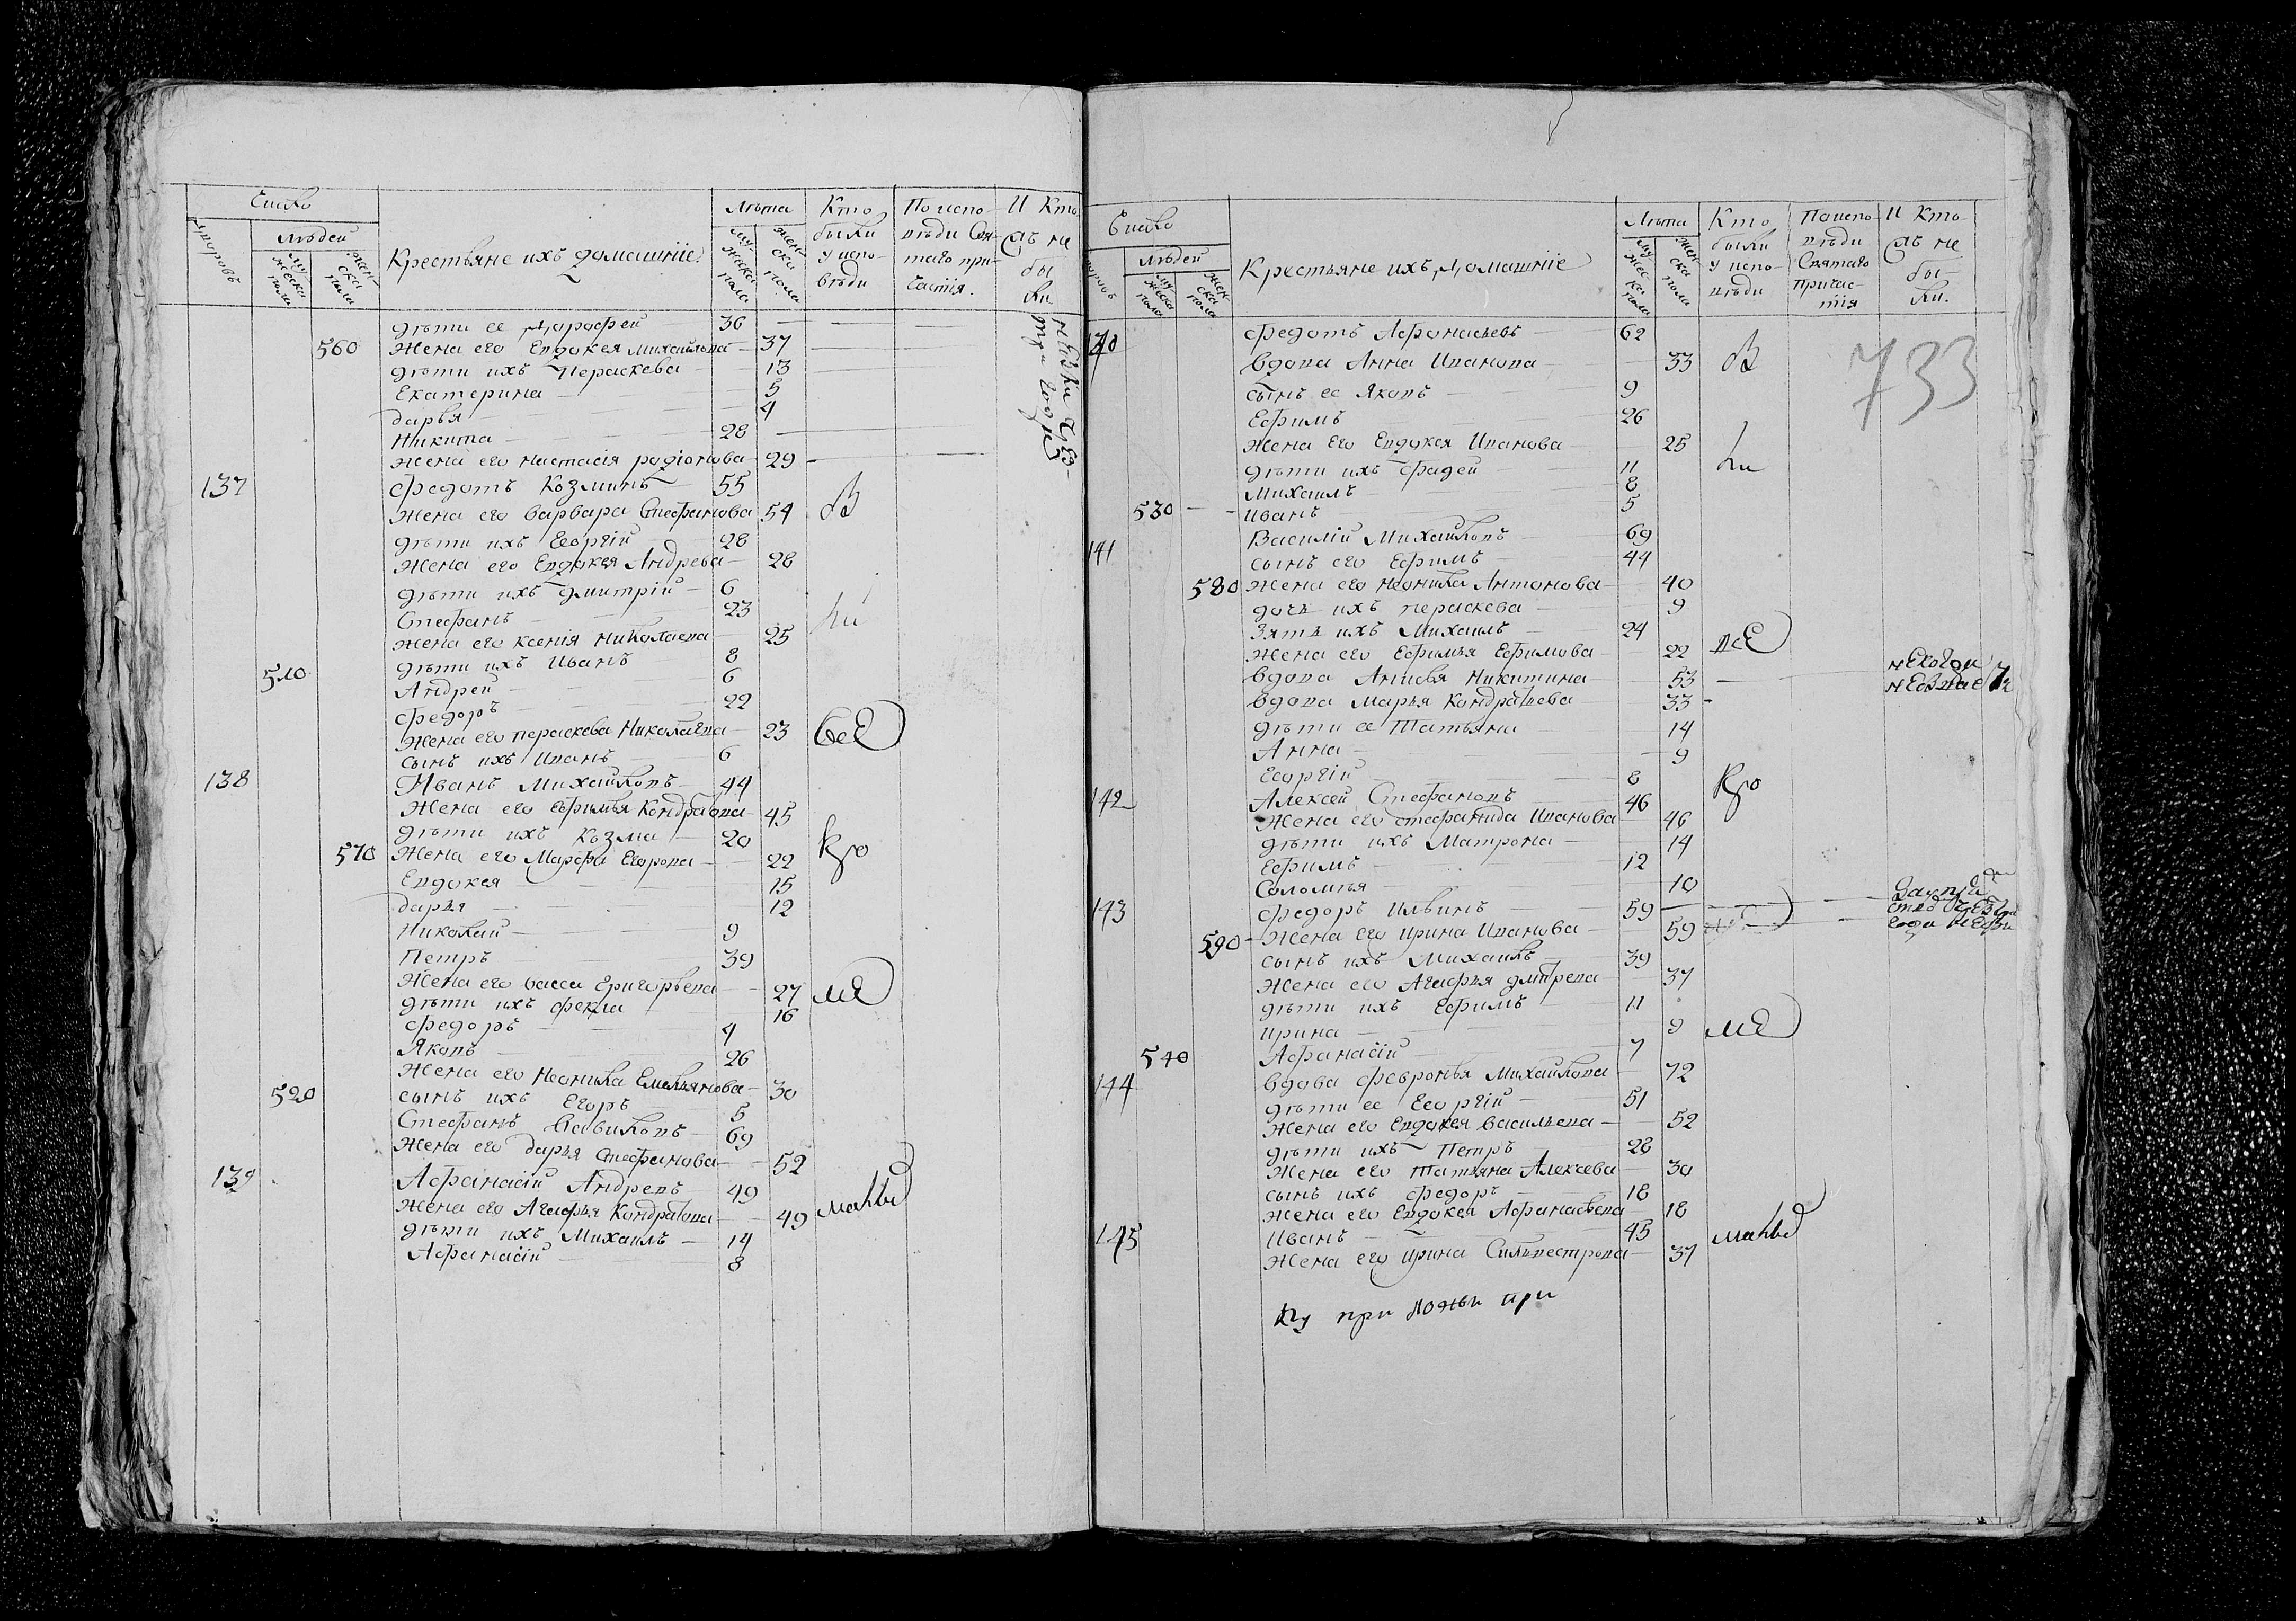 Число
Дворовъ
Людей
Мужеска пола
Женска пола
Крестьяне ихъ домашніе
Лѣта
Мужеска пола
Женска пола
Кто были у исповѣди
По исповѣди Святаго причастія
И Кто не были
дѣти ее Дорофей 36
560 Жена его Евдокея Михайлова 37
дѣти ихъ Параскева 13
Екатерина 5
дарья 4
Никита 28
Жена его Настасія родіонова 29
137 Федотъ Козминъ 55
Жена его варвара Стефанова 54
дѣти ихъ Георгій 28
Жена его Евдокея Андрева 28
дѣти ихъ дмитрій 6
Стефанъ 23
Жена его ксенія николаева 25
510 дѣти ихъ Иванъ 8
Андрей 6
Федоръ 22
Жена его пераскева Николаева 23 все
сынъ ихъ Иванъ 6
138 Иванъ Михайловъ 44
Жена его Ефимья Кондратова 45
дѣти ихъ Козма 20
570 Жена его Марфа Егорова 22
Евдокея 15
дарья 12
Николай 9
Петръ 39
Жена его васса Григорьева 27
дѣти ихъ фекла 16
федоръ 4
Яковъ 26
Жена его Неонила Емельянова 30
520 сынъ ихъ Егоръ 5
Стефанъ Савиловъ 69
Жена его дарья Стефанова 52
139 Афанасій Андревъ 49
Жена его Агафья Кондратова 49
дѣти ихъ Михаилъ 14
Афанасій 8
Число
Людей
Мужеска пола
Женска пола
Крестьяне ихъ домашніе
Лѣта
Мужеска пола
Женска пола
Кто были у исповѣди
По исповѣди Святаго причастія
И Кто не были.
733
140 Федотъ Афонасьевъ 62
вдова Анна Иванова 33
сынъ ее Яковъ 9
Ефимъ 26
Жена Его Евдокея Иванова 25
дѣти ихъ Фадей 11
Михаилъ 8
530 Иванъ 5
141 Василій Михайловъ 69
сынъ его Ефимъ 44
580 Жена его неонила Антонова 40
дочь ихъ пераскева 9
Зять ихъ Михаилъ 24
Жена его Ефимья Ефимова 22 все
вдова Анисья Никитина 53
вдова Марья Кондратьева 33
дѣти ее Татьяна 14
Анна 9
Георгій 8
142 Алексей Стефановъ 46
Жена его стефанида Иванова 46
дѣти ихъ Матрона 14
Ефимъ 12
Соломія 10
143 Федоръ Ильинъ 59
590 Жена его Ирина Иванова 59
сынъ ихъ Михаилъ 39
Жена его Агафья дмитрева 37
дѣти ихъ Ефимъ 11
Ирина 9
540 Афанасій 7
144 вдова Февронья Михайлова 72
дѣти ее Георгій 51
Жена его Евдокея васильева 52
дѣти ихъ Петръ 28
Жена его Татьяна Алексева 30
сынъ ихъ Федоръ 18
Жена его Евдокея Афанасьева 18
145 Иванъ 45
Жена его Ирина Сильвестрова 37
при ложи при